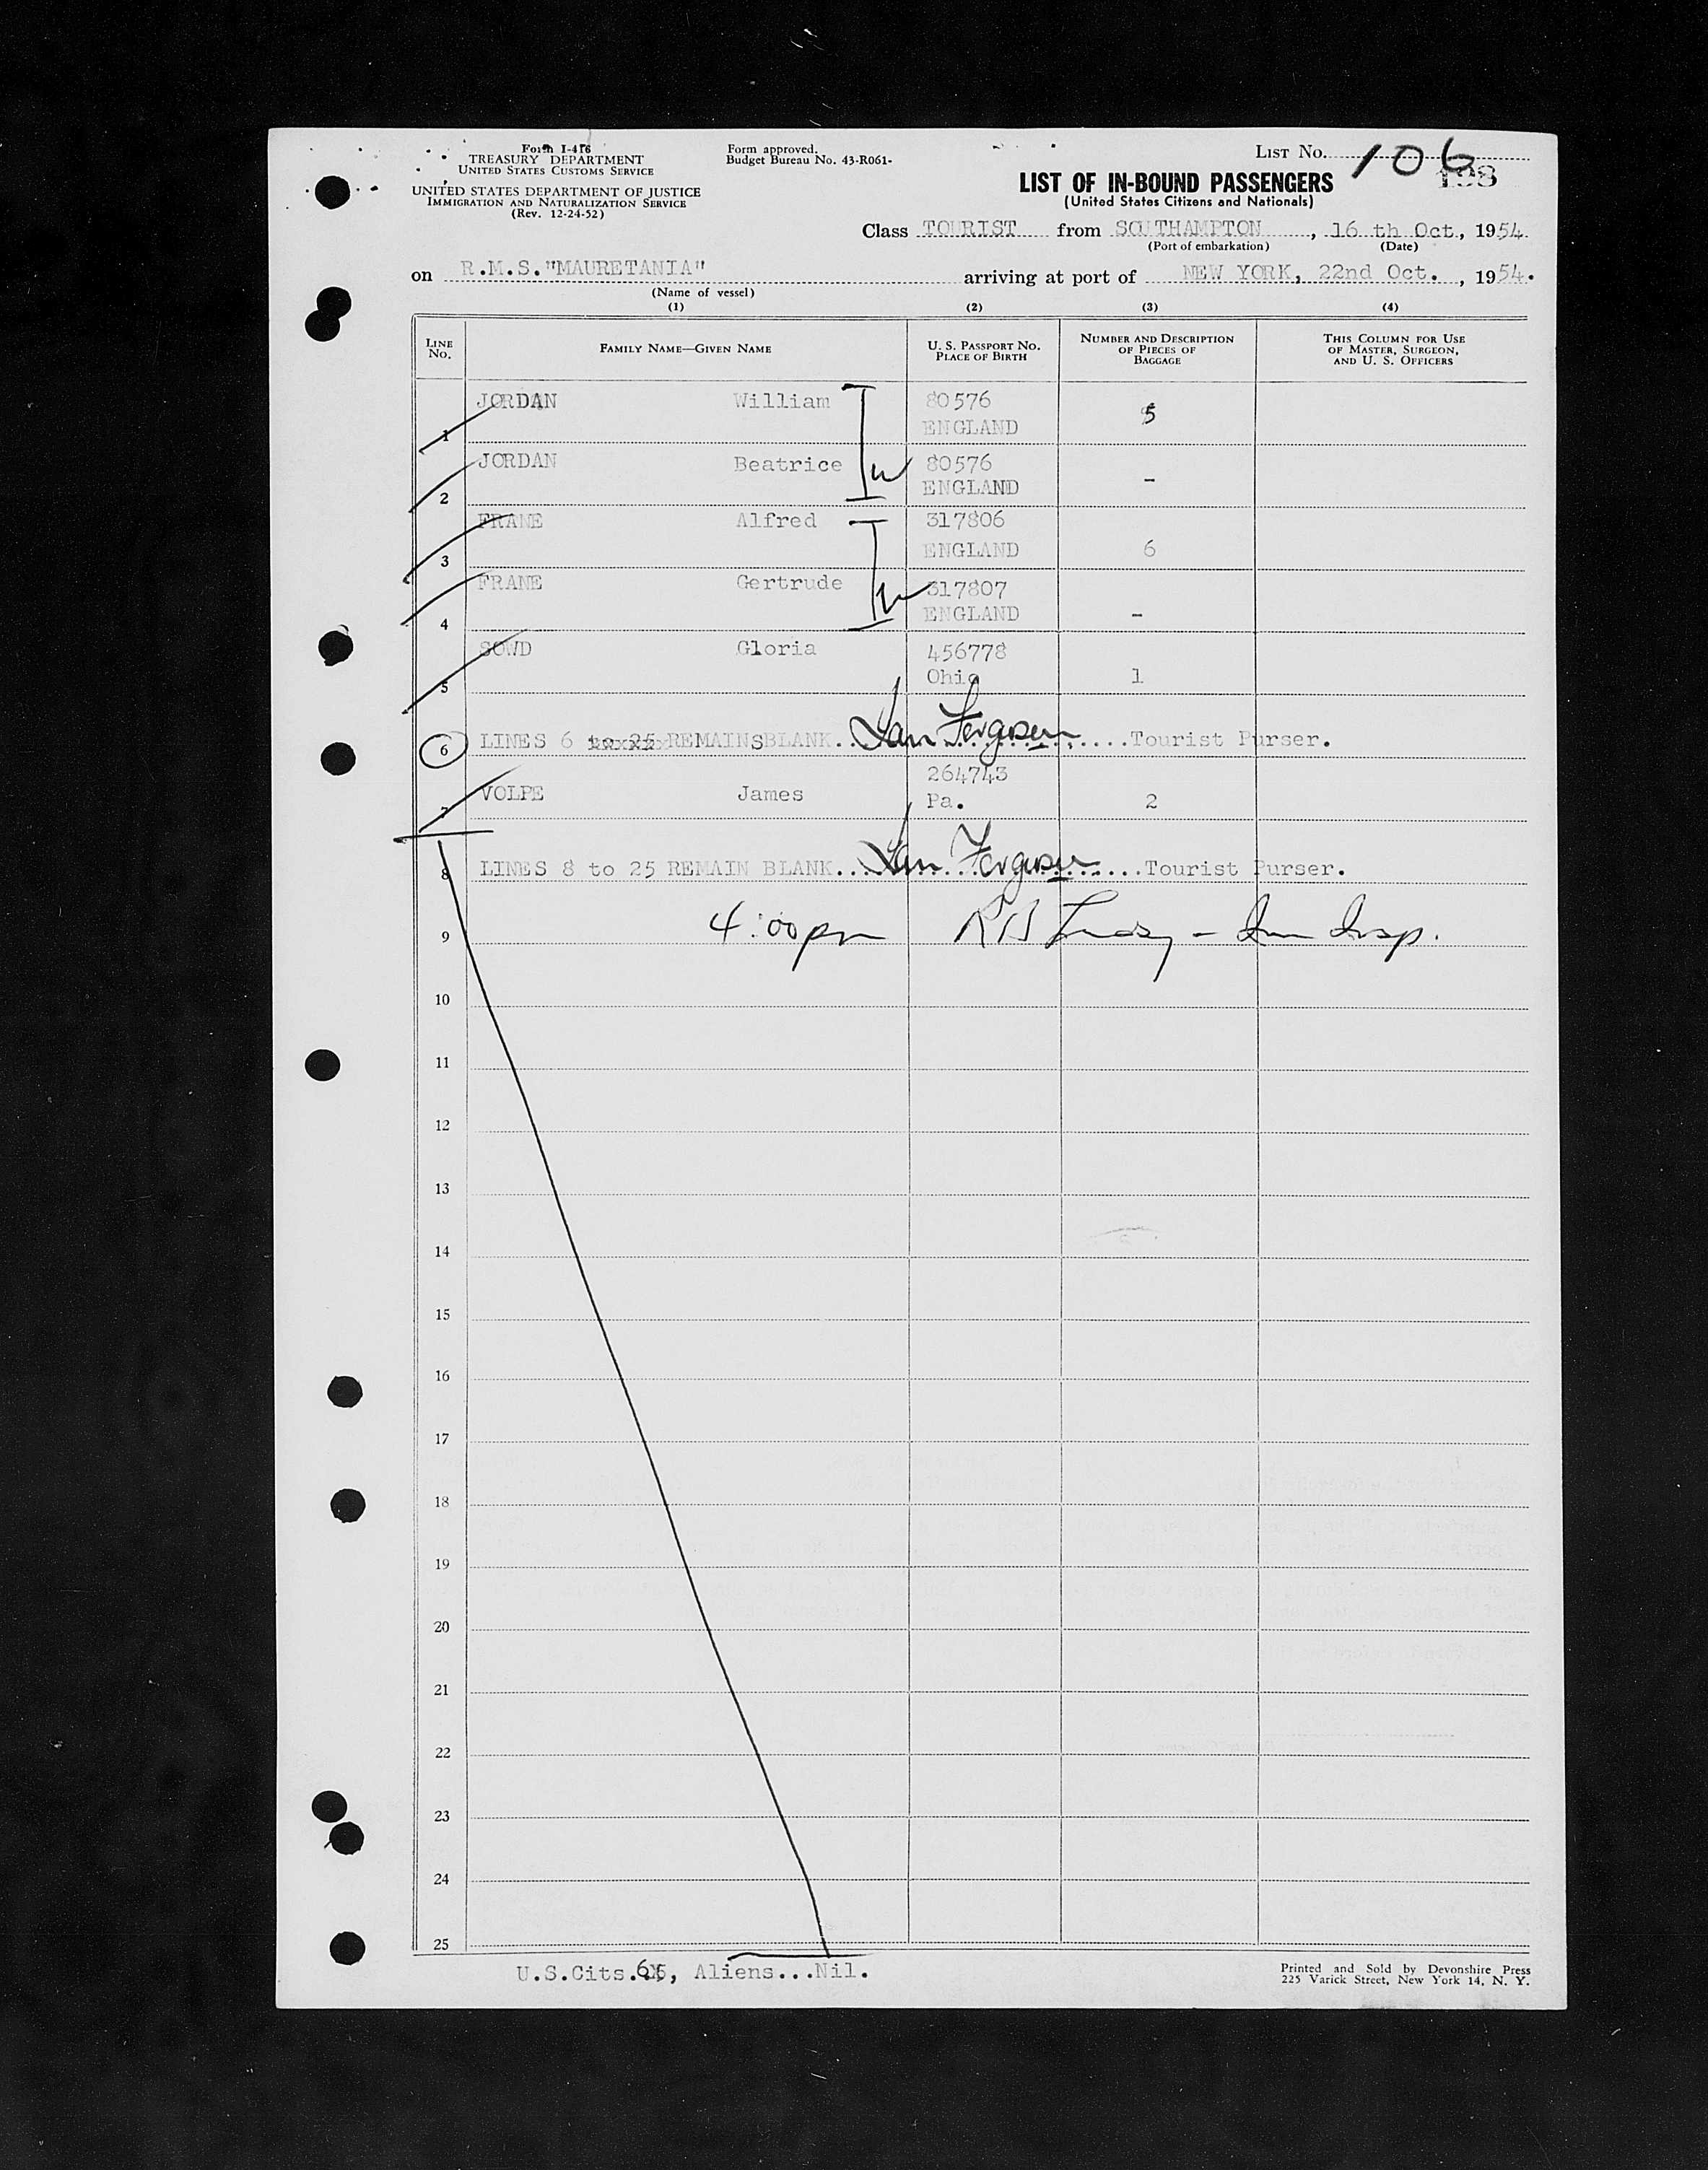 Form I-416
TREASURY DEPARTMENT
UNITED STATES CUSTOMS SERVICE
UNITED STATES DEPARTMENT OF JUSTICE
IMMIGRATION AND NATURALIZATION SERVICE
(Rev. 12-24-52)
Form approved.
Budget Bureau No. 43-R061-
LIST No. 106
198
LIST OF IN-BOUND PASSENGERS
(United States Citizens and Nationals)
Class TOURIST from SOUTHAMPTON, 16 th Oct., 1954
(Port of embarkation) (Date)
on R.M.S."MAURETANIA" arriving at port of NEW YORK, 22nd Oct., 1954.
(Name of vessel)
(1) (2) (3) (4)
LINE No. FAMILY NAME—GIVEN NAME U. S. PASSPORT No. PLACE OF BIRTH NUMBER AND DESCRIPTION OF PIECES OF BAGGAGE THIS COLUMN FOR USE OF MASTER, SURGEON, AND U. S. OFFICERS
1 JORDAN William 80576 ENGLAND 5
2 JORDAN Beatrice 80576 ENGLAND -
3 FRANE Alfred 317806 ENGLAND 6
4 FRANE Gertrude 317807 ENGLAND -
5 SOWD Gloria 456778 Ohio 1
6 LINES 6 to 25 REMAINS BLANK... Ian Ferguson ...Tourist Purser.
7 VOLPE James 264743 Pa. 2
8 LINES 8 to 25 REMAIN BLANK... Ian Ferguson ...Tourist Purser.
9 4:00pm RB - Imm Insp.
10
11
12
13
14
15
16
17
18
19
20
21
22
23
24
25
U.S.Cits. 6, Aliens...Nil.
Printed and Sold by Devonshire Press
225 Varick Street, New York 14, N. Y.